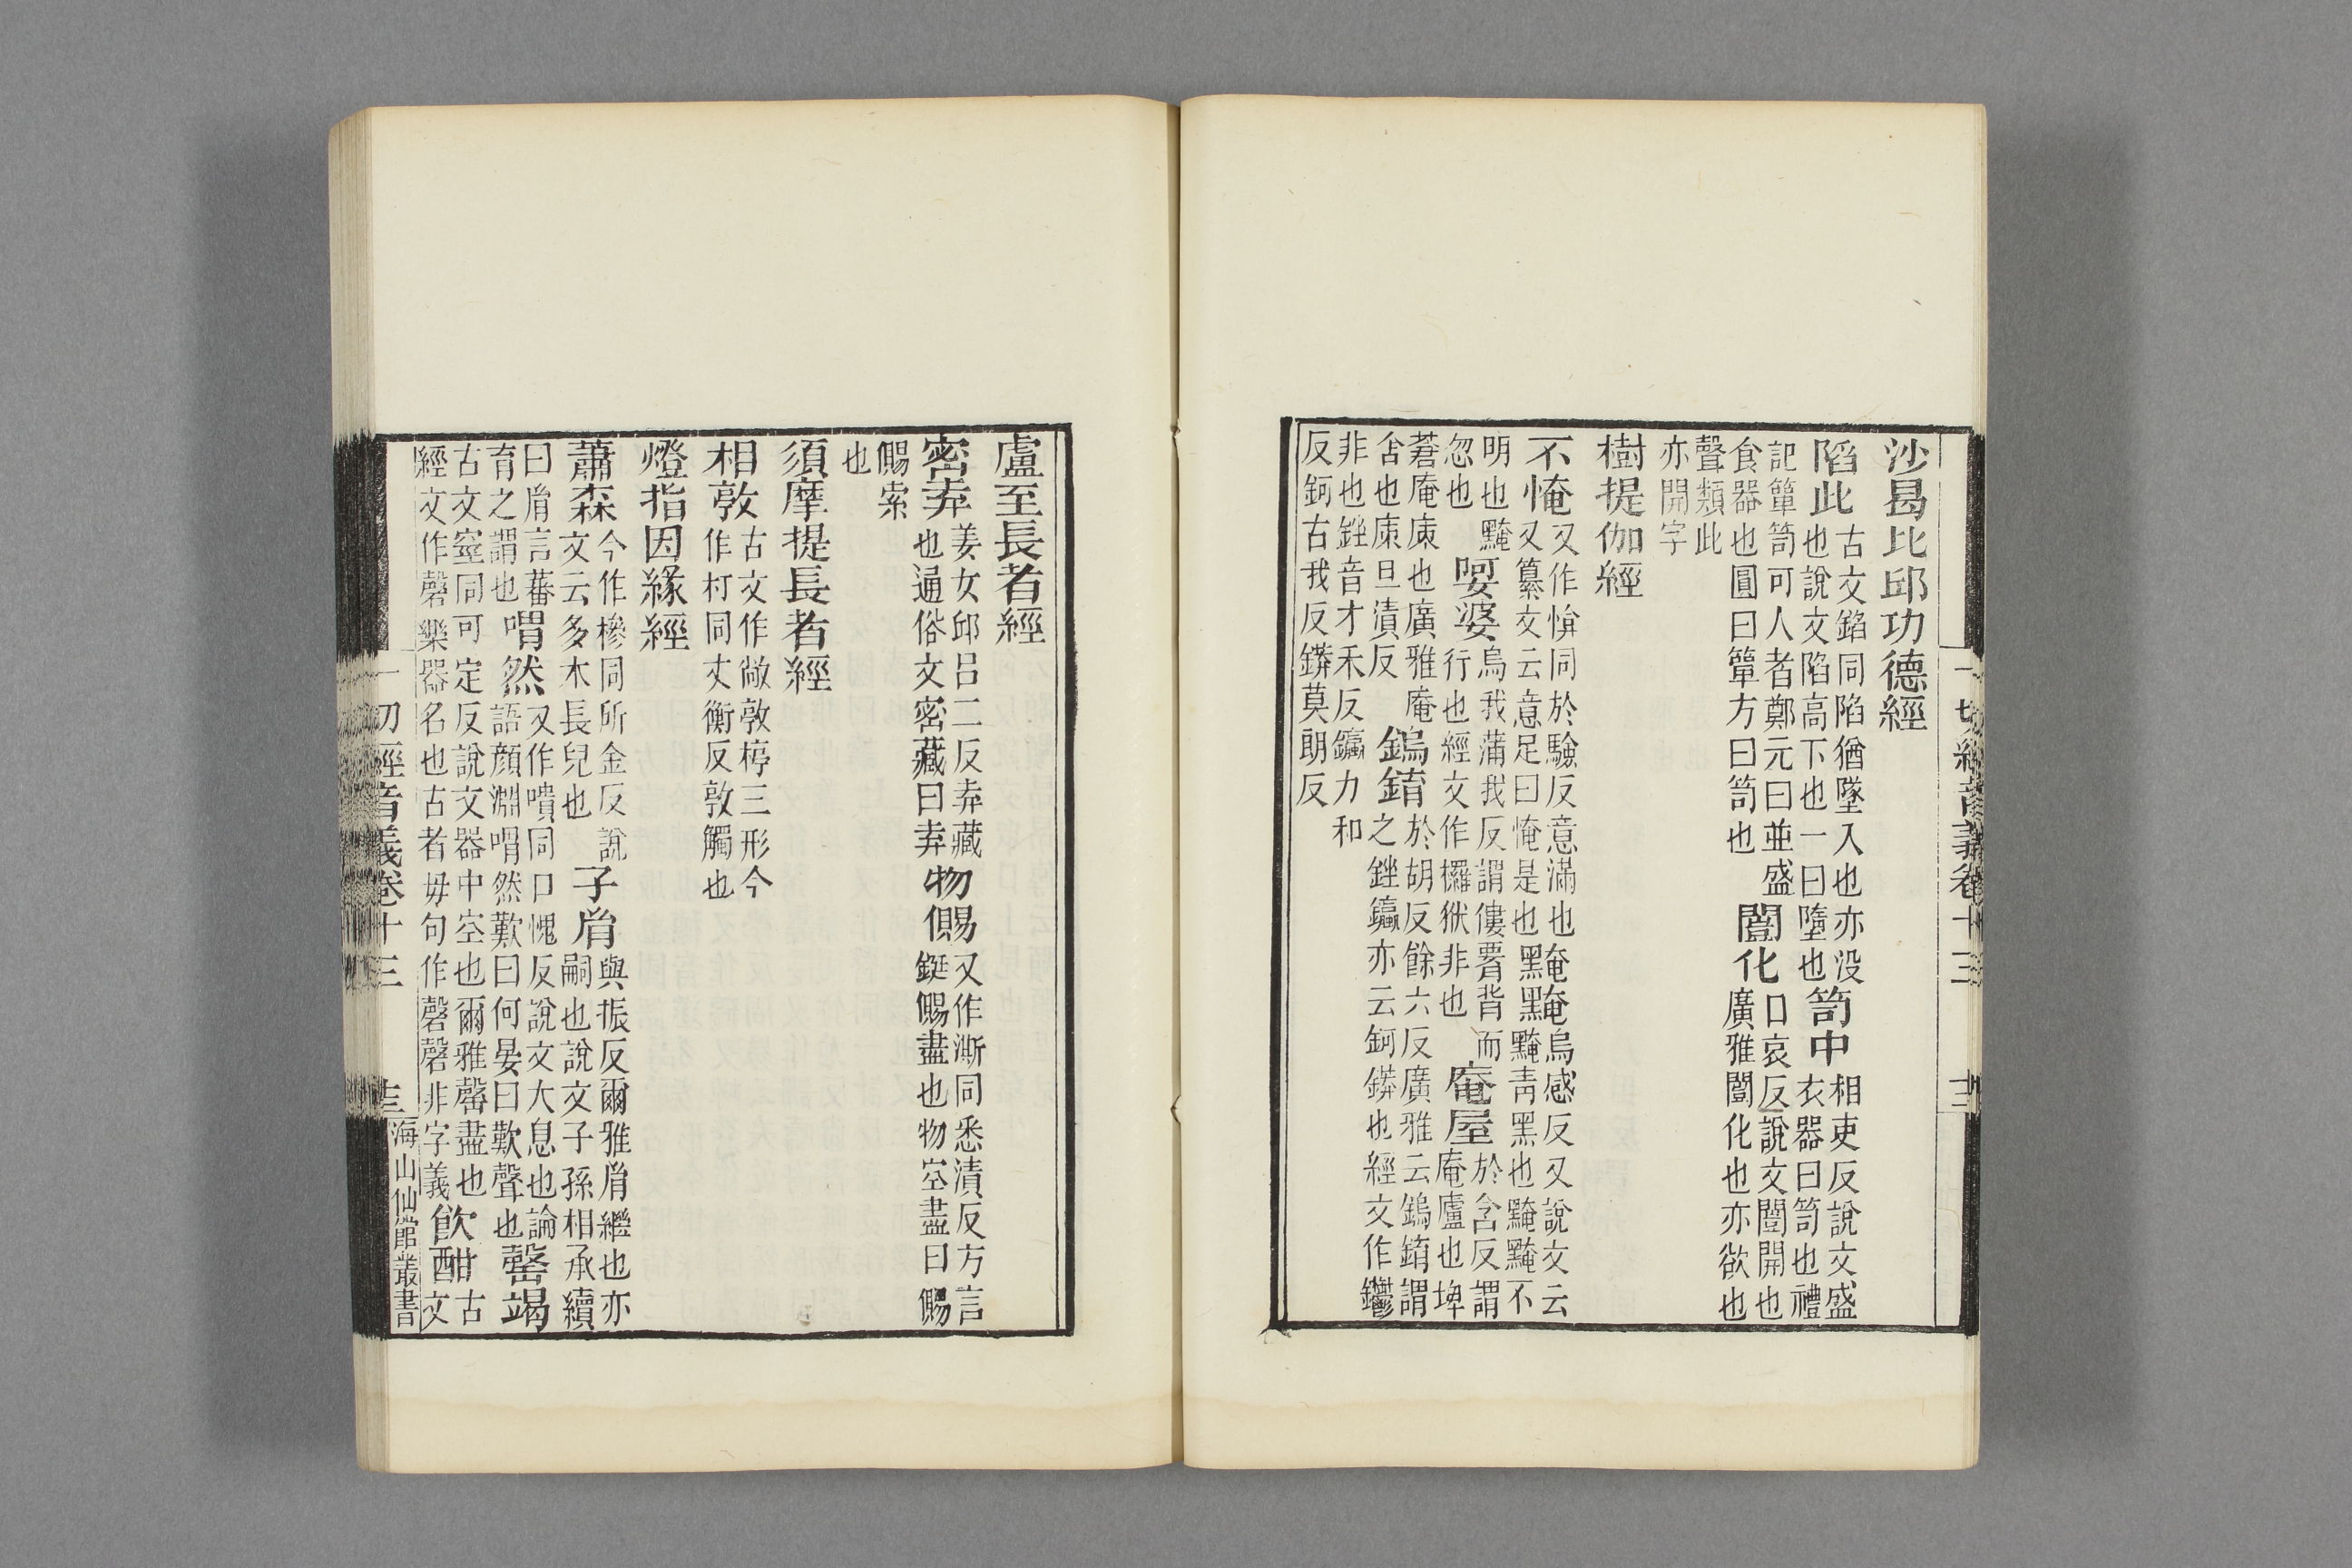 一切經音義卷十三 十三
沙曷比邱功德經
陷此古文錎同陷猶墜入也亦没也說文陷高下也一曰墮也笥中相吏反說文盛衣器曰笥也禮
記簞笥可人者鄭元曰並盛食器也圓曰簞方曰笥也闓化口哀反說文闓開也廣雅闓化也亦欲也
聲類此亦開字
樹提伽經
不㤿又作㤷同於驗反意滿也又纂文云意足曰㤿是也黤黤烏感反又說文云黤青黑也黤黤不
明也黤忽也㛿婆烏我蒲我反謂僂䏿背而行也經文作狀非也庵屋於含反謂庵盧也埤
蒼庵庲也廣雅庵舍也庲旦漬反鎢錥於胡反餘六反廣雅云鎢錥謂之銼鑘亦云鈳䥈也經文作鬱
非也銼音才禾反鑘力和反鈳古我反䥈莫朗反
盧至長者經
密弆姜女邱呂二反弆藏也通俗文密藏曰弆物儩又作澌同悉漬反方言鋌儩盡也物空盡曰儩
儩索也
須摩提長者經
相敦古文作敞敦三形今作朾同丈衡反敦觸也
燈指因緣經
蕭森今作槮同所金反說文云多木長皃也子胤與振反爾雅胤繼也亦嗣也說文子孫相承續
曰胤言蕃育之謂也喟然又作嘳同口愧反說文大息也論語顏淵喟然歎曰何晏曰歎聲也罄竭
古文窒同可定反說文器中空也爾雅罄盡也經文作磬樂器名也古者毋句作磬磬非字義飲酣古文
一切經音義卷十三 十三 海山仙館叢書